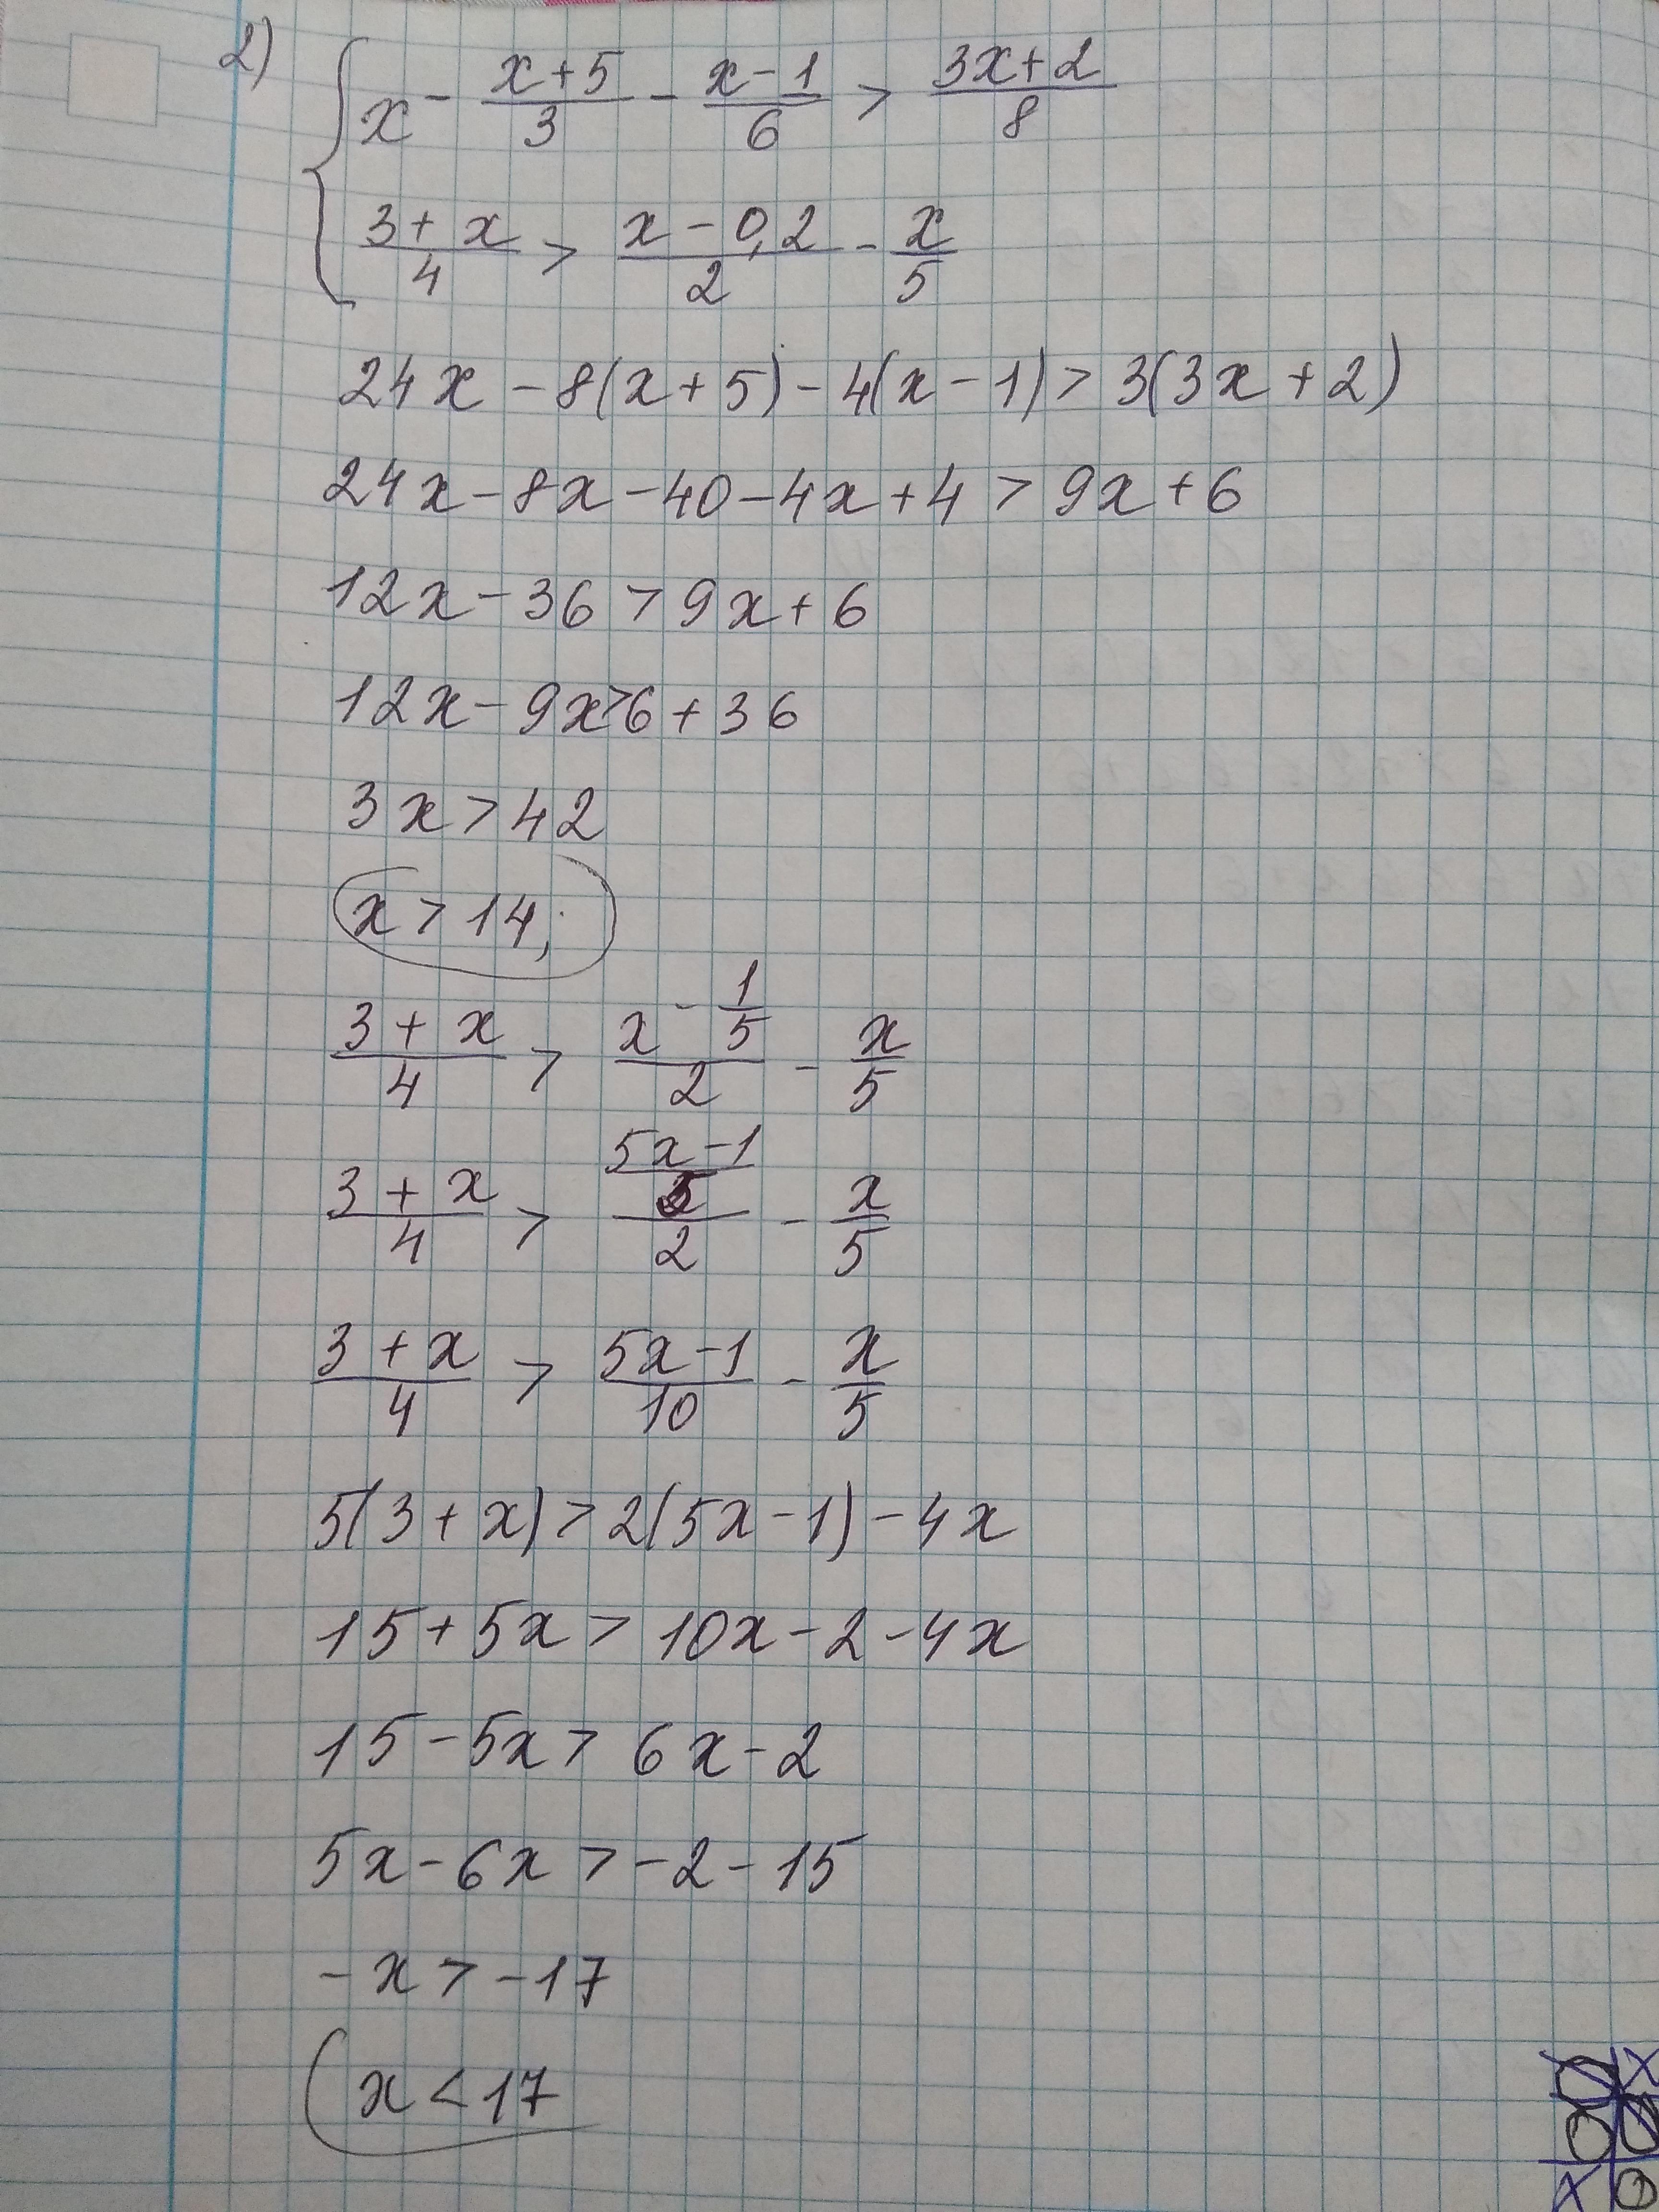 2) { x - (x+5)/3 - (x-1)/6 > (3x+2)/8
(3+x)/4 > (x-0,2)/2 - x/5
24x - 8(x+5) - 4(x-1) > 3(3x+2)
24x - 8x - 40 - 4x + 4 > 9x + 6
12x - 36 > 9x + 6
12x - 9x > 6 + 36
3x > 42
x > 14;
(3+x)/4 > (x - 1/5)/2 - x/5
(3+x)/4 > ((5x-1)/5)/2 - x/5
(3+x)/4 > (5x-1)/10 - x/5
5(3+x) > 2(5x-1) - 4x
15 + 5x > 10x - 2 - 4x
15 - 5x > 6x - 2
5x - 6x > -2 - 15
-x > -17
x < 17